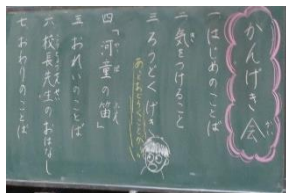 かんげき会
かい
一 はじめのことば
二 気をつけること
三 ろうどくげき
四 「河童の笛」
五 おれいのことば
六 校長先生のおはなし
七 おわりのことば